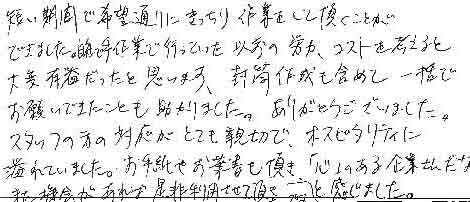 短い期間で希望通りにきっちり作業をして頂くことが
できました。臨時作業で行っていた以前の労力、コストを考えると
大変有益だったと思います。封筒作成も含めて一括で
お願いできたことも助かりました。ありがとうございました。
スタッフの方の対応がとても親切で、ホスピタリティに
溢れていました。お手紙やお葉書も頂き「心のある企業さんだな
また機会があれば是非利用させて頂き と感じました。